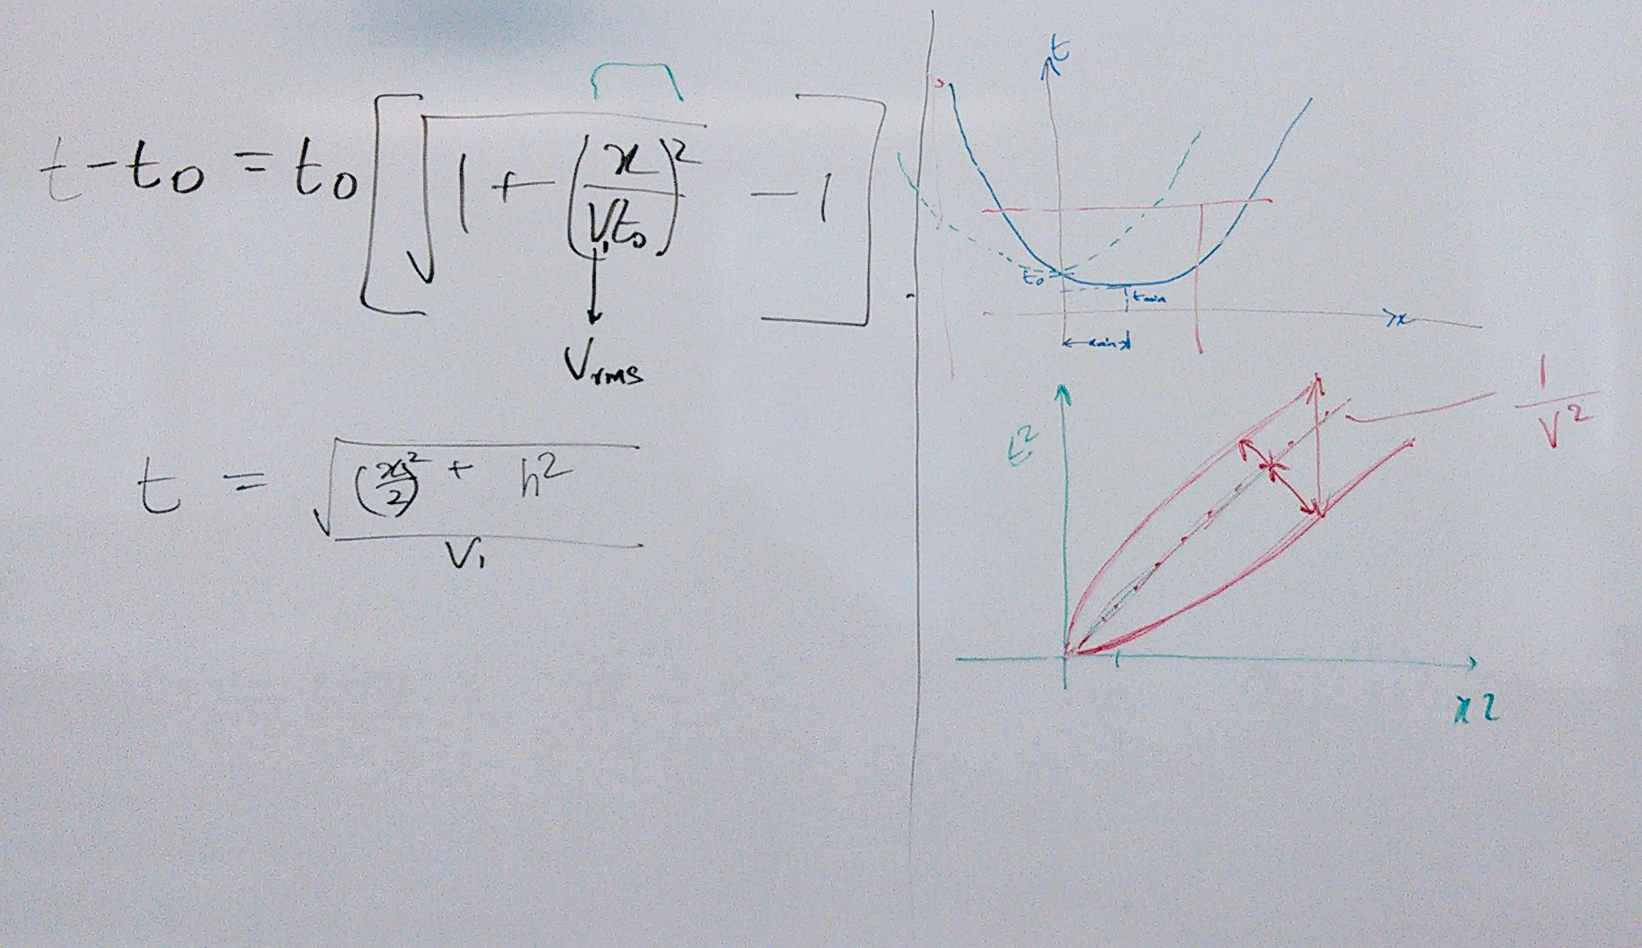 t - t₀ = t₀ [ √(1 + (x / V₁t₀)²) - 1 ]
Vrms
t = √((x/2)² + h²) / V₁
t
t₀
tmin
x
xmin
1 / V²
t²
x2